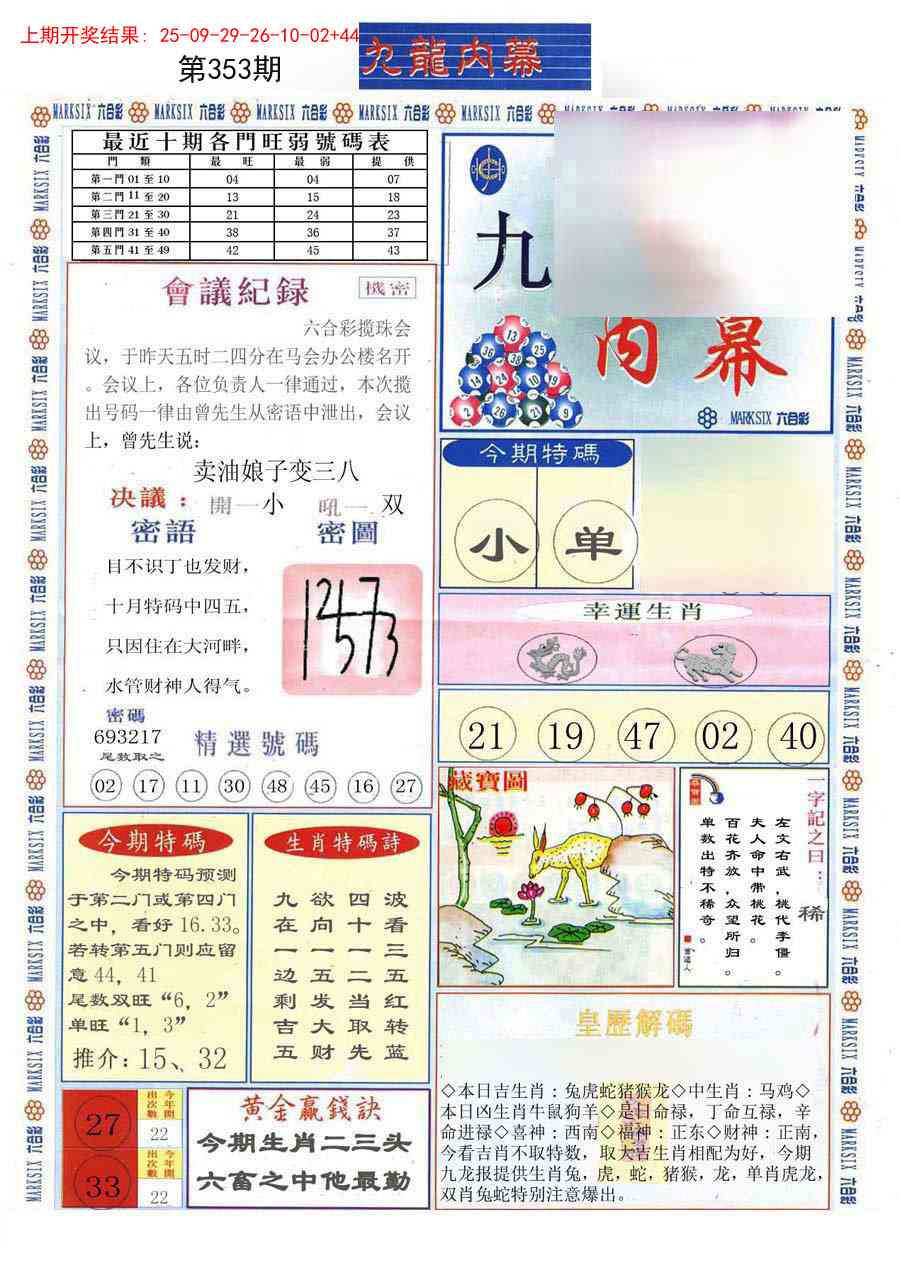 上期开奖结果: 25-09-29-26-10-02+44
第353期
九龍内幕
MARKSIX 六合彩
最近十期各門旺弱號碼表
門 類 最 旺 最 弱 提 供
第一門 01 至 10 04 04 07
第二門 11 至 20 13 15 18
第三門 21 至 30 21 24 23
第四門 31 至 40 38 36 37
第五門 41 至 49 42 45 43
會議紀録
機密
六合彩揽珠会
议，于昨天五时二四分在马会办公楼名开
。会议上，各位负责人一律通过，本次揽
出号码一律由曾先生从密语中泄出，会议
上，曾先生说：
卖油娘子变三八
决議：開一小 吼一双
密語 密圖
目不识丁也发财，
十月特码中四五，
只因住在大河畔，
水管财神人得气。
密碼
693217
尾数取之
精選號碼
02 17 11 30 48 45 16 27
九
内幕
13
36 38 25
14 24 10 19
2 26 21 9
MARKSIX 六合彩
今期特碼
小 单
幸運生肖
21 19 47 02 40
藏寶圖
一字記之曰：稀
左文右武，桃代李僵。
夫人命中带桃花。
百花齐放，众望所归。
单数出特不稀奇。
今期特碼
今期特码预测
于第二门或第四门
之中，看好 16.33。
若转第五门则应留
意 44，41
尾数双旺“6，2”
单旺“1，3”
推介：15、32
生肖特碼詩
九 欲 四 波
在 向 十 看
一 一 一 三
边 五 二 五
剩 发 当 红
吉 大 取 转
五 财 先 蓝
27
今年開出次數
22
33
今年開出次數
22
黄金赢錢訣
今期生肖二三头
六畜之中他最勤
皇歷解碼
◇本日吉生肖：兔虎蛇猪猴龙◇中生肖：马鸡◇
本日凶生肖牛鼠狗羊◇是日命禄，丁命互禄，辛
命进禄◇喜神：西南◇福神：正东◇财神：正南，
今看吉肖不取特数，取大吉生肖相配为好，今期
九龙报提供生肖兔，虎，蛇，猪猴，龙，单肖虎龙，
双肖兔蛇特别注意爆出。